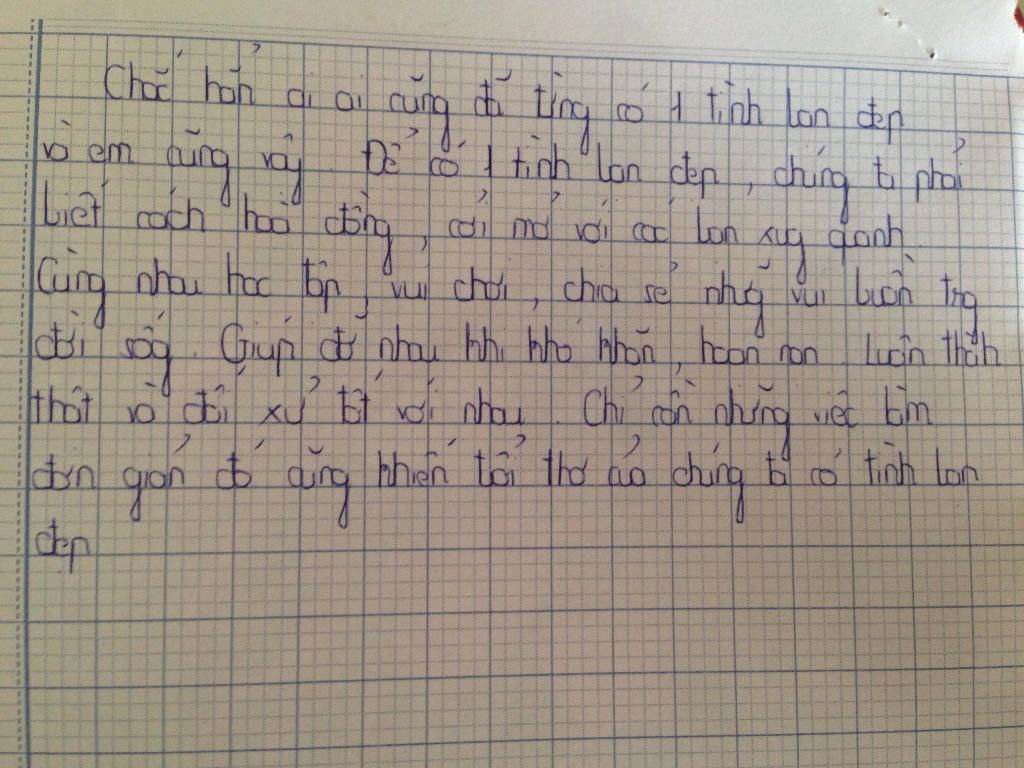 Chắc hẳn ai ai cũng đã từng có 1 tình bạn đẹp
và em cũng vậy. Để có 1 tình bạn đẹp, chúng ta phải
biết cách hoà đồng, cởi mở với các bạn xug quanh.
Cùng nhau học tập, vui chơi, chia sẻ nhữg vui buồn trg
đời sốg. Giúp đỡ nhau khi khó khăn, hoạn nạn. Luôn thành
thật và đối xử tốt với nhau. Chỉ cần những việc làm
đơn giản đó cũng khiến tuổi thơ của chúng ta có tình bạn
đẹp